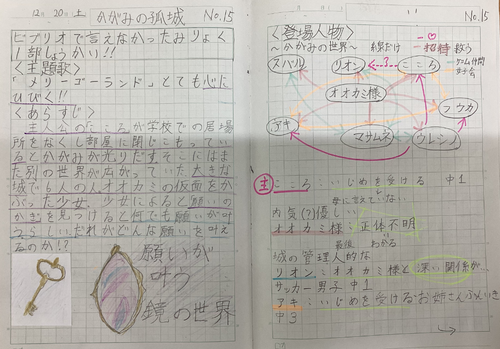 12月20日 土
かがみの孤城
No.15
ビブリオで言えなかったみりょく
1部しょうかい!!
〈主題歌〉
「メリーゴーランド」とても心に
ひびく!!
〈あらすじ〉
主人公のこころが学校での居場
所をなくし部屋に閉じこもってい
るとかがみが光りだすそこにはま
た別の世界が広がっていた大きな
城で6人の人オオカミの仮面をか
ぶった少女。少女によると願いの
かぎを見つけると何でも願いが叶
うらしい。だれがどんな願いを叶え
るのか!?
願いが
叶う
鏡の世界
No.15
〈登場人物〉
〜かがみの世界〜
招待
救う
スバル
リオン
こころ
オオカミ様
アキ
マサムネ
フウカ
ウレシノ
主 こころ:いじめを受ける 中1
母に言えていない
内気(?)優しい
オオカミ様:正体不明
最後 わかる
城の管理人的な
リオン:オオカミ様と深い関係が…
サッカー男子 中1
アキ:いじめを受けるお姉さんふんいき
中3